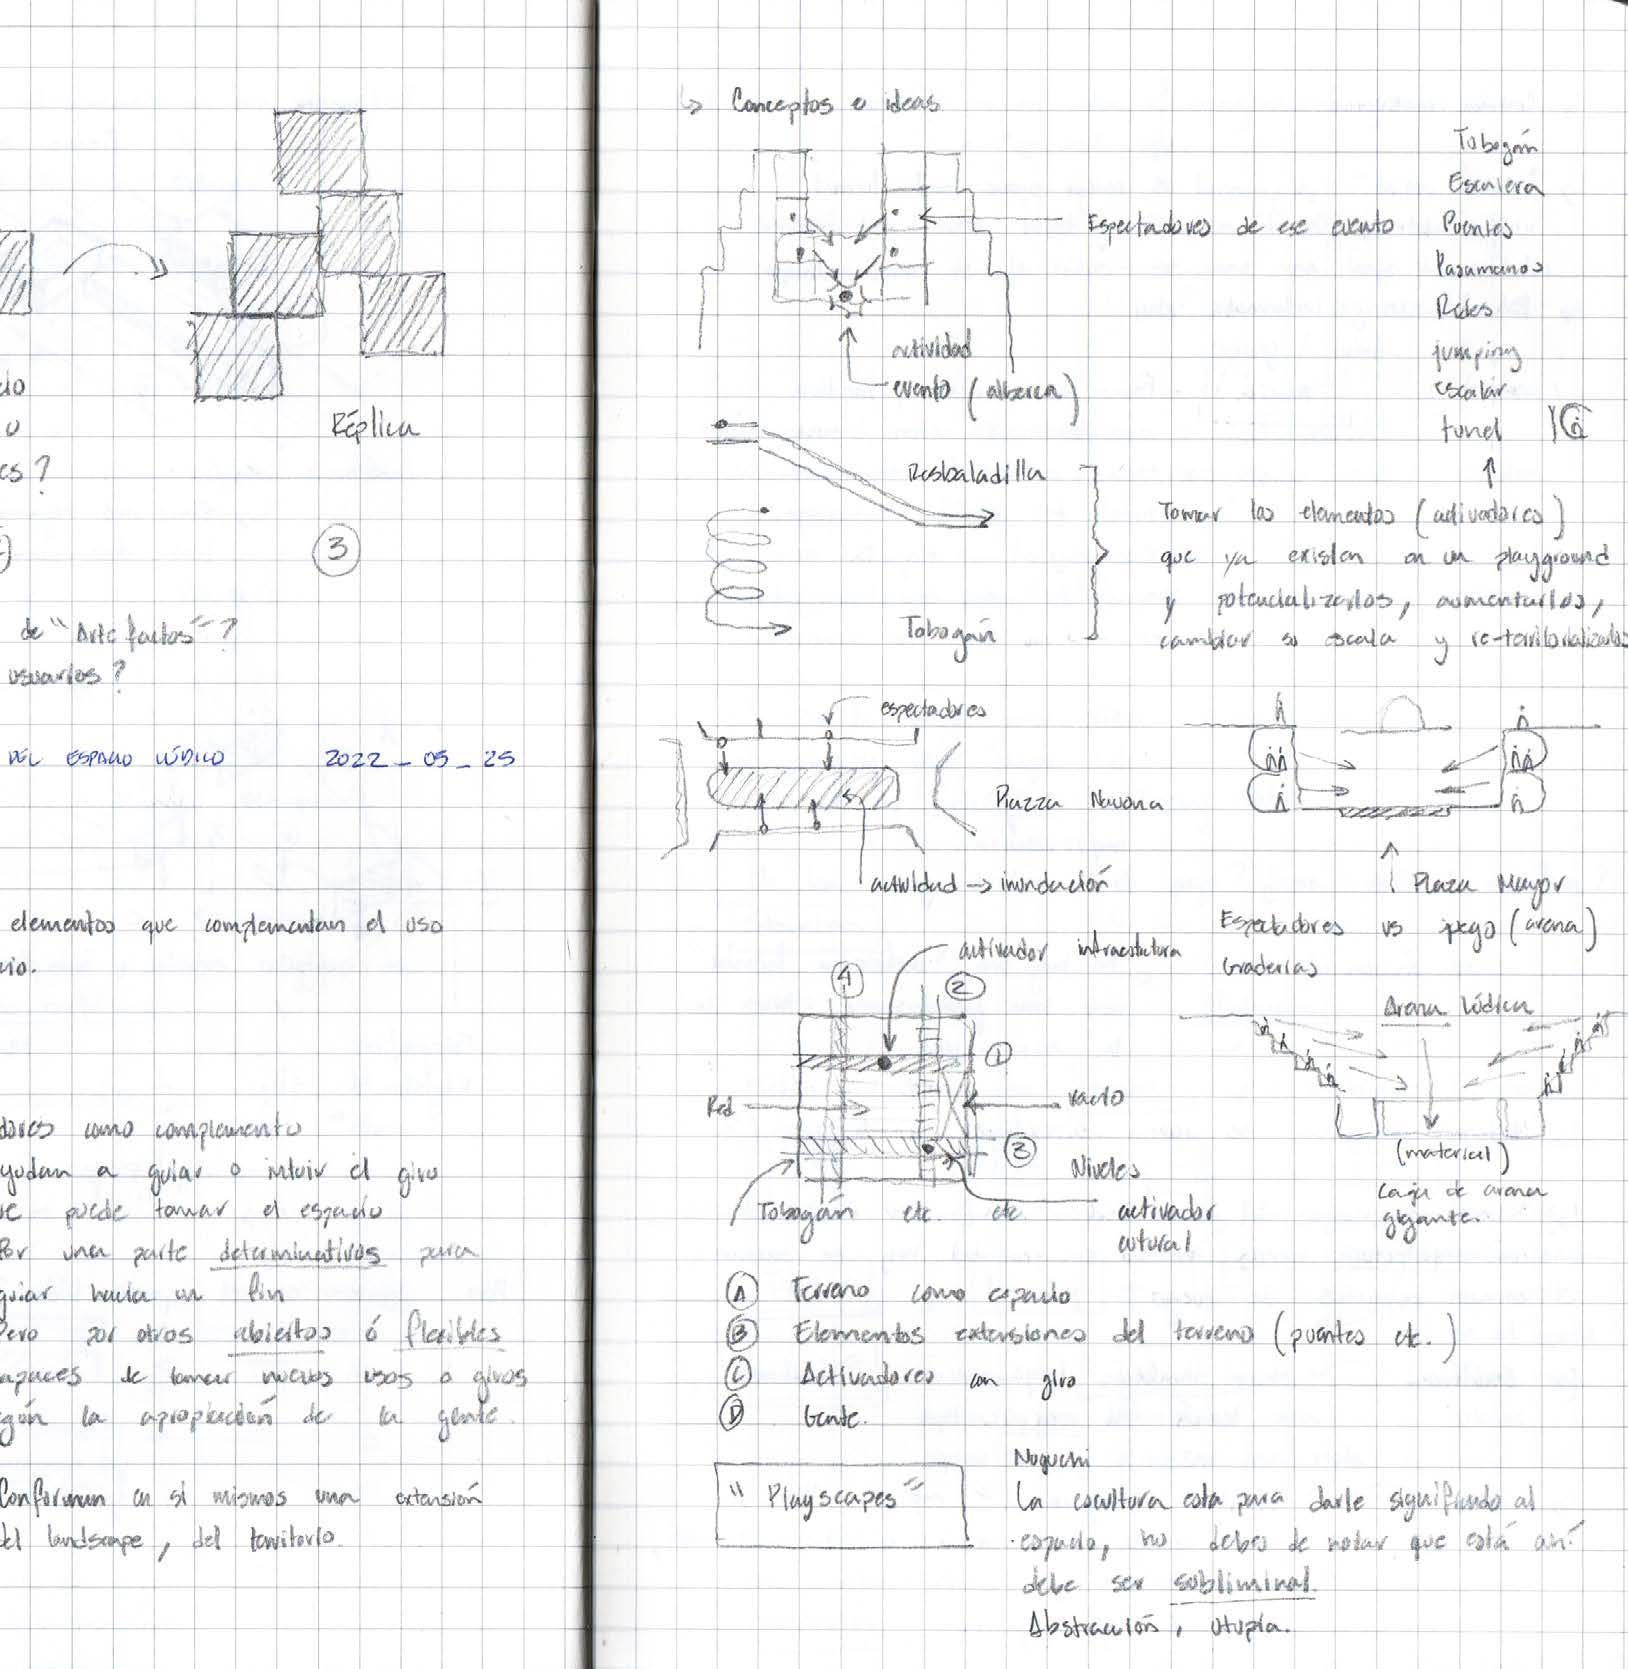 Réplica
do
o
es?
3
de "Artefactos"?
usuarios?
DEL ESPACIO LÚDICO 2022_05_25
elementos que complementan el uso
cio.
dores como complemento
yudan a guiar o intuir el giro
ue puede tomar el espacio
Por una parte determinativos para
guiar hacia un fin
Pero por otros abiertos ó flexibles
apaces de tomar nuevos usos o giros
egún la apropiación de la gente.
Conforman en si mismos una extensión
del landscape, del territorio.
↳ Conceptos o ideas
Espectadores de ese evento
actividad
evento (alberca)
Tobogán
Escalera
Puentes
Pasamanos
Redes
jumping
escalar
tunel
Resbaladilla
Tobogán
Tomar los elementos (activadores)
que ya existen en un playground
y potencializarlos, aumentarlos,
cambiar su escala y re-territorializarlos
espectadores
Piazza Navona
actividad → inundación
Plaza Mayor
Espectadores vs juego (arena)
Graderías
activador infraestructura
4
2
1
Red
vacío
3
Niveles
Tobogán etc. etc
activador
cultural
Arena lúdica
(material)
Caja de arena
gigante.
A Terreno como espacio
B Elementos extensiones del terreno (puentes etc.)
C Activadores con giro
D Gente.
"Playscapes"
Noguchi
La escultura esta para darle significado al
espacio, no debes de notar que está ahí
debe ser subliminal.
Abstracción, utopía.